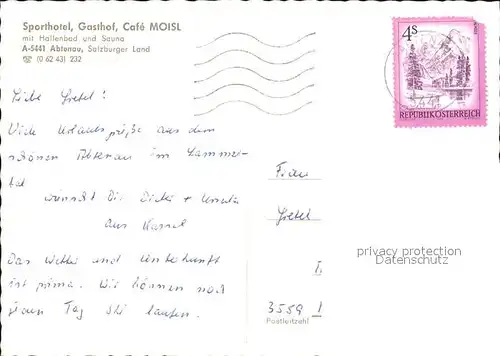 Sporthotel, Gasthof, Café MOISL
mit Hallenbad und Sauna
A-5441 Abtenau, Salzburger Land
☎ (0 62 43) 232
4S
REPUBLIK ÖSTERREICH
5441
Liebe Gretel!
Viele Urlaubsgrüße aus dem
schönen Abtenau im Lammer-
tal
wünscht Dir, Dieter + Ursula
aus Kassel
Das Wetter und Unterkunft
ist prima. Wir können noch
jeden Tag Ski laufen.
Frau
Gretel
3559
Postleitzahl
privacy protection
Datenschutz